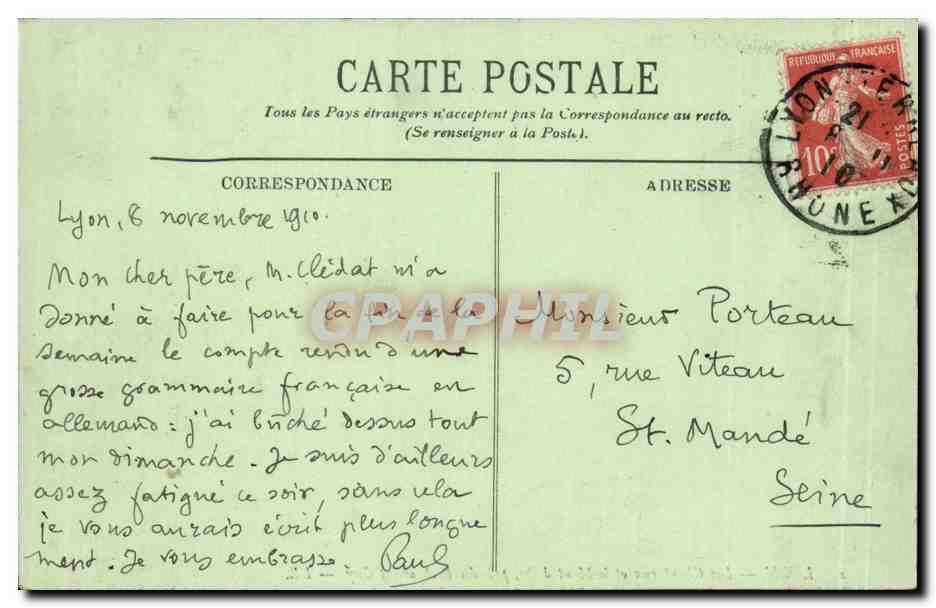 CARTE POSTALE
Tous les Pays étrangers n'acceptent pas la Correspondance au recto.
(Se renseigner à la Poste).
CORRESPONDANCE
Lyon, 8 novembre 1910.
Mon cher père, M. Clédat m'a
donné à faire pour la fin de la
semaine le compte rendu d'une
grosse grammaire française en
allemand : j'ai bûché dessus tout
mon dimanche. Je suis d'ailleurs
assez fatigué ce soir, sans cela
je vous aurais écrit plus longue
ment. Je vous embrasse. Paul
ADRESSE
Monsieur Porteau
5, rue Viteau
St. Mandé
Seine
REPUBLIQUE FRANÇAISE
10c
POSTES
LYON
21
8 11
10
RHONE
CPAPHIL